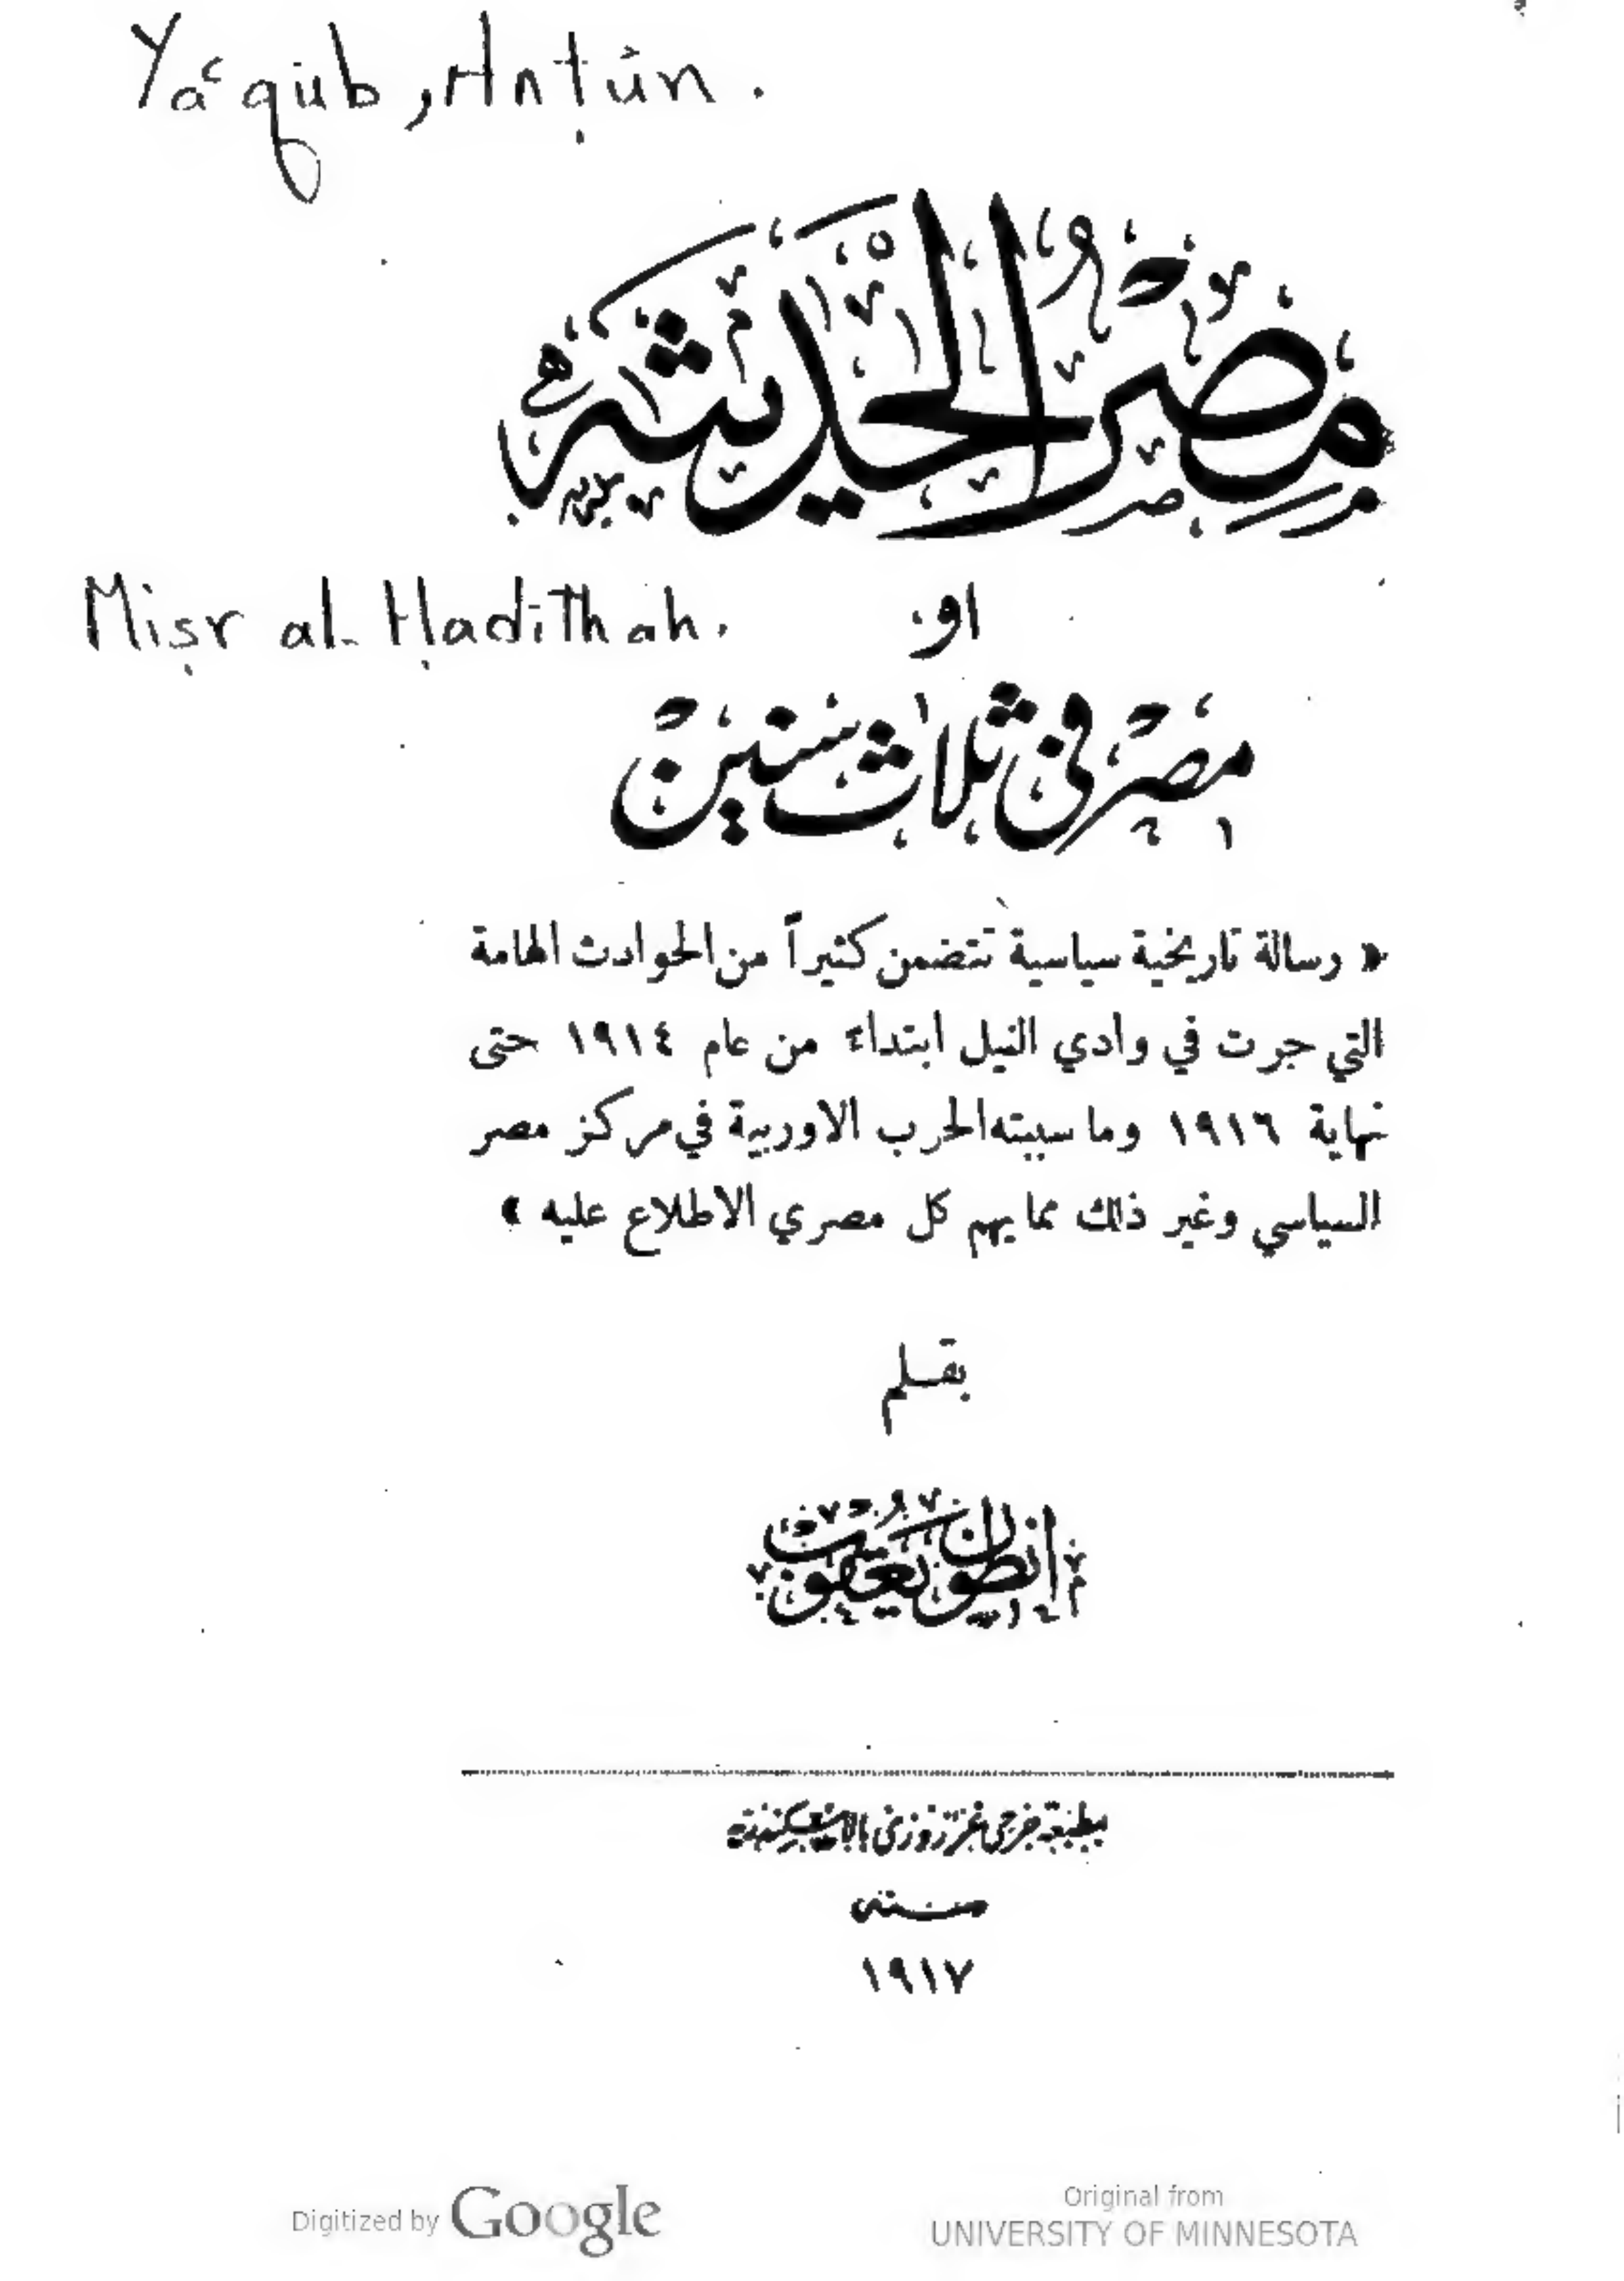 Ya'qūb, Anṭūn.
مصر الحديثة
او
Miṣr al-Ḥadithah.
مصر في ثلاث سنين
« رسالة تاريخية سياسية تتضمن كثيراً من الحوادث الهامة
التي جرت في وادي النيل ابتداء من عام ١٩١٤ حتى
نهاية ١٩١٦ وما سببته الحرب الاوربية في مركز مصر
السياسي وغير ذلك مما يهم كل مصري الاطلاع عليه »
بقلم
انطون يعقوب
بمطبعة جرجي غرزوزي بالاسكندرية
سنة
١٩١٧
Digitized by Google
Original from
UNIVERSITY OF MINNESOTA